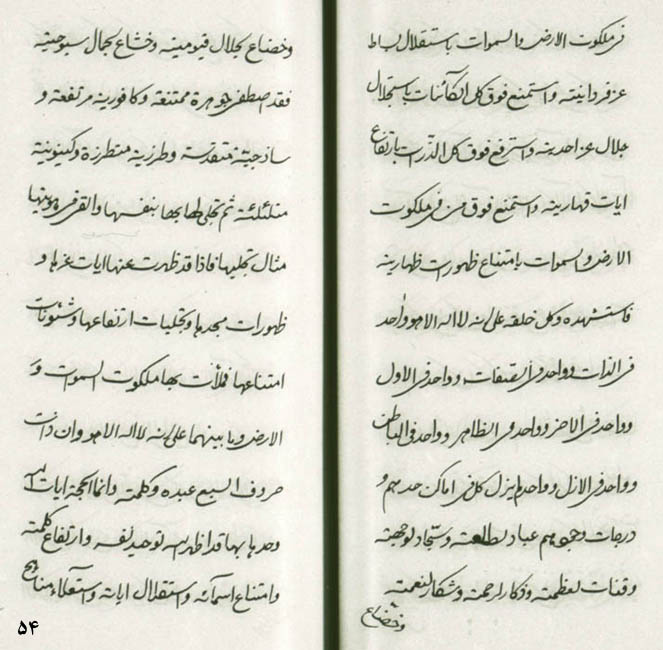 فی ملکوت الارض و السموات باستقلال بساط
عز فردانیته و استمنع فوق کل الکائنات باستجلال
جلال عز احدیته و استرفع فوق کل الذرات بارتفاع
ایات قهاریته و استمنع فوق من فی ملکوت
الارض و السموات بامتناع ظهورات ظهاریته
فاستشهده و کل خلقه علی انه لا اله الا هو واحد
فی الذات و واحد فی الصفات و واحد فی الاول
و واحد فی الاخر و واحد فی الظاهر و واحد فی الباطن
و واحد فی الازل و واحد لم یزل کل فی اماکن حدهم و
درجات وجوهم عباد لطلعته و سجاد لوجهته
و قنات لعظمته و ذکار لرحمته و شکار لنعمته
و خضاع
و خضاع لجلال قیومیته و خشاع لجمال سبوحیته
فقد اصطفی جوهرة ممتنعة و کافوریة مرتفعة و
ساذجیة متقدسة و طرزیة متطرزة و کینونیة
متلئلئة ثم تجلی لها بها بنفسها و القی فی هویتها
مثال تجلیها فاذا قد ظهرت عنها ایات عزها و
ظهورات مجدها و تجلیات ارتفاعها و شئونات
امتناعها فملأت بها ملکوت السموات و
الارض و ما بینهما علی انه لا اله الا هو و ان ذات
حروف السبع عبده و کلمته و انما الحجة ایات الله
وحدها بها قد اظهر الله توحید نفسه و ارتفاع کلمته
و امتناع اسمائه و استقلال ایاته و استعلاء مناهج
۵۴